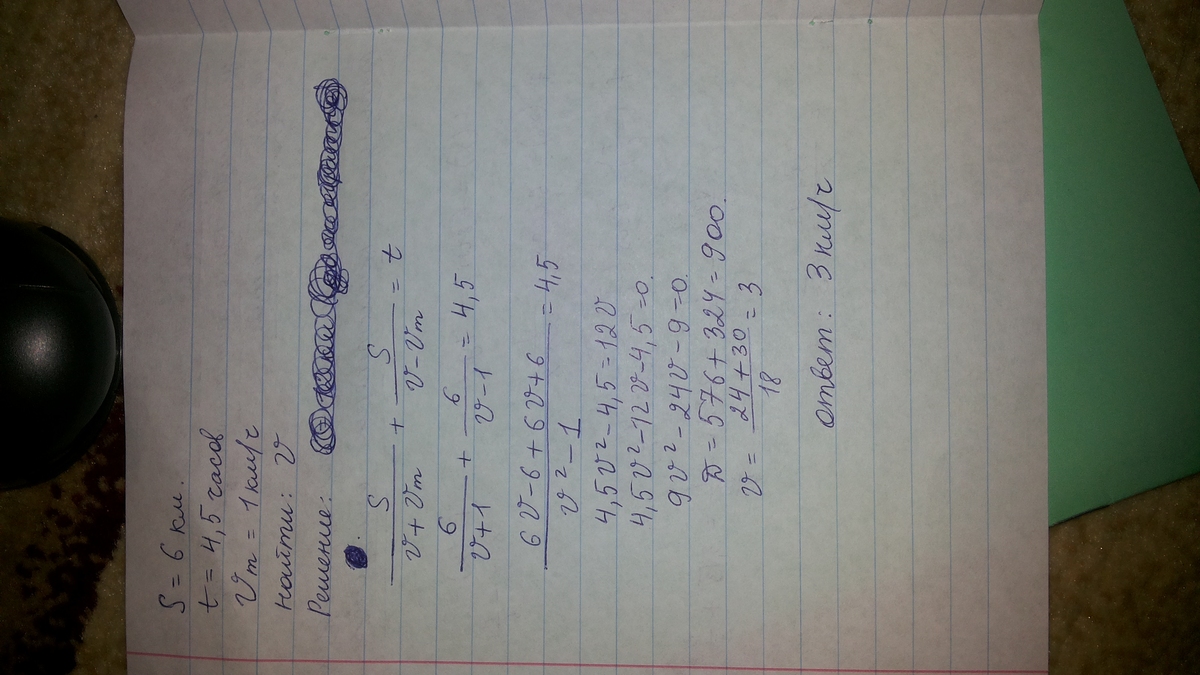 S = 6 км.
t = 4,5 часов
Vm = 1 км/ч
найти: V
Решение:
S/(V+Vm) + S/(V-Vm) = t
6/(V+1) + 6/(V-1) = 4,5
(6V-6+6V+6)/(V²-1) = 4,5
4,5V²-4,5=12V
4,5V²-12V-4,5=0.
9V²-24V-9=0.
D=576+324=900.
V = (24+30)/18 = 3
ответ: 3 км/ч